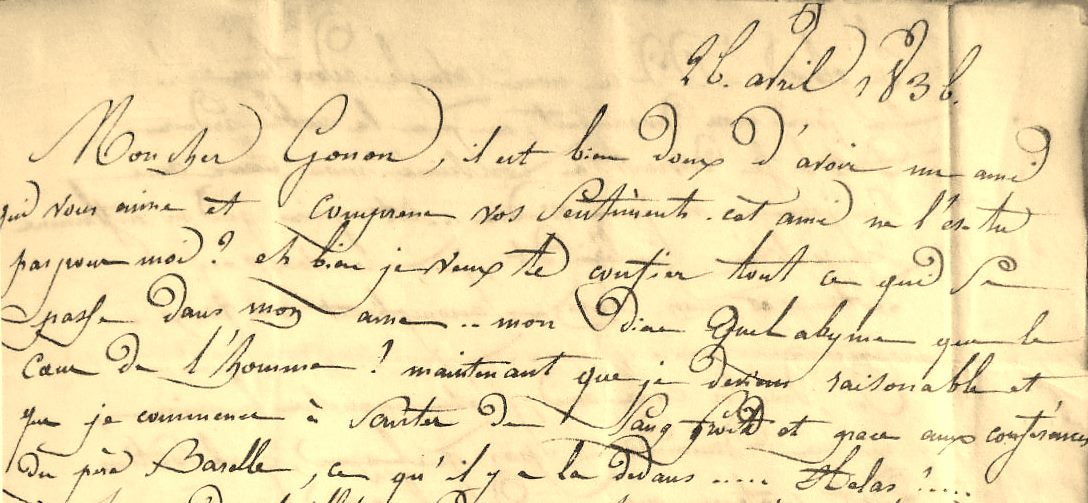 26. avril 1836.
Mon cher Gonon, il est bien doux d'avoir un ami
qui vous aime et comprene vos sentiments. cet ami ne l'es-tu
pas pour moi? eh bien je veux te confier tout ce qui se
passe dans mon ame.. mon dieu Quel abyme que le
Cœur de l'homme! maintenant que je deviens raisonable et
que je commence à de sang froid et grace aux conférences
du père Barelle, ce qu'il y a la dedans..... Helas!.....